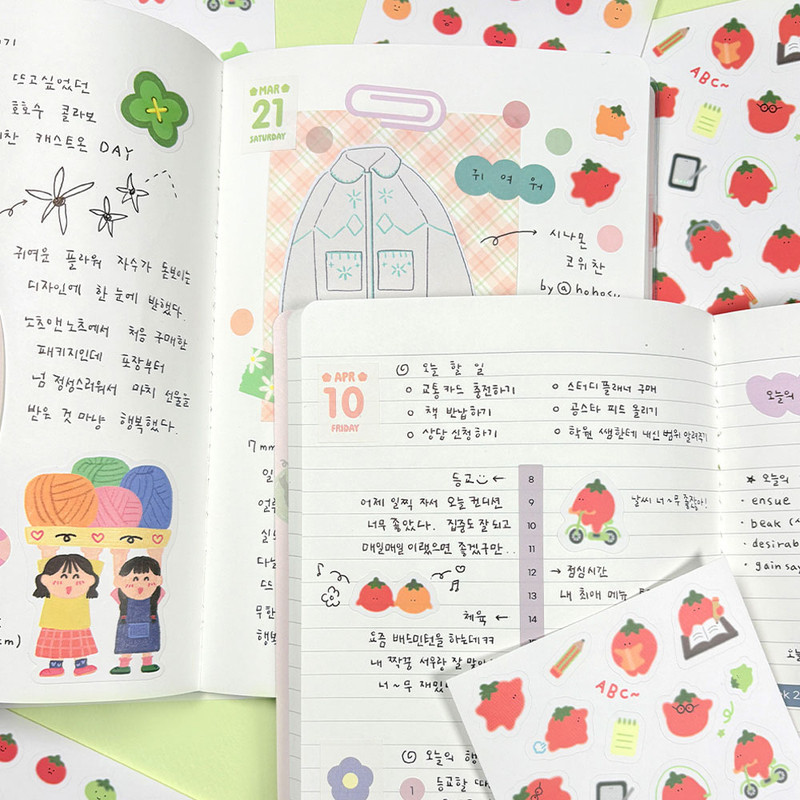 뜨고싶었던
호호수 콜라보
캐스트온 DAY
귀여운 플라워 자수가 돋보이는
디자인에 한 눈에 반했다.
노츠앤노츠에서 처음 구매한
패키지인데 포장부터
넘 정성스러워서 마치 선물을
받은 것 마냥 행복했다.
MAR
21
SATURDAY
귀여워
시나몬
코위찬
by @hohosu
7mm
APR
10
FRIDAY
오늘 할 일
교통카드 충전하기
책 반납하기
상담 신청하기
스터디플래너 구매
공스타 피드 올리기
학원 쌤한테 내신 범위 알려주기
등교
어제 일찍 자서 오늘 컨디션
너무 좋았다. 집중도 잘 되고
매일매일 이랬으면 좋겠구만...
체육
요즘 배드민턴을 하는데 ㅋㅋ
내 짝꿍 서우랑 잘
너~무
8
9
10
11
12
13
14
15
날씨 너~무 좋잖아!
점심시간
내 최애 메뉴
오늘의
등교할
1
오늘의
★ 오늘의
• ensue
• beak
• desirab
• gain say
ABC~
ABC~